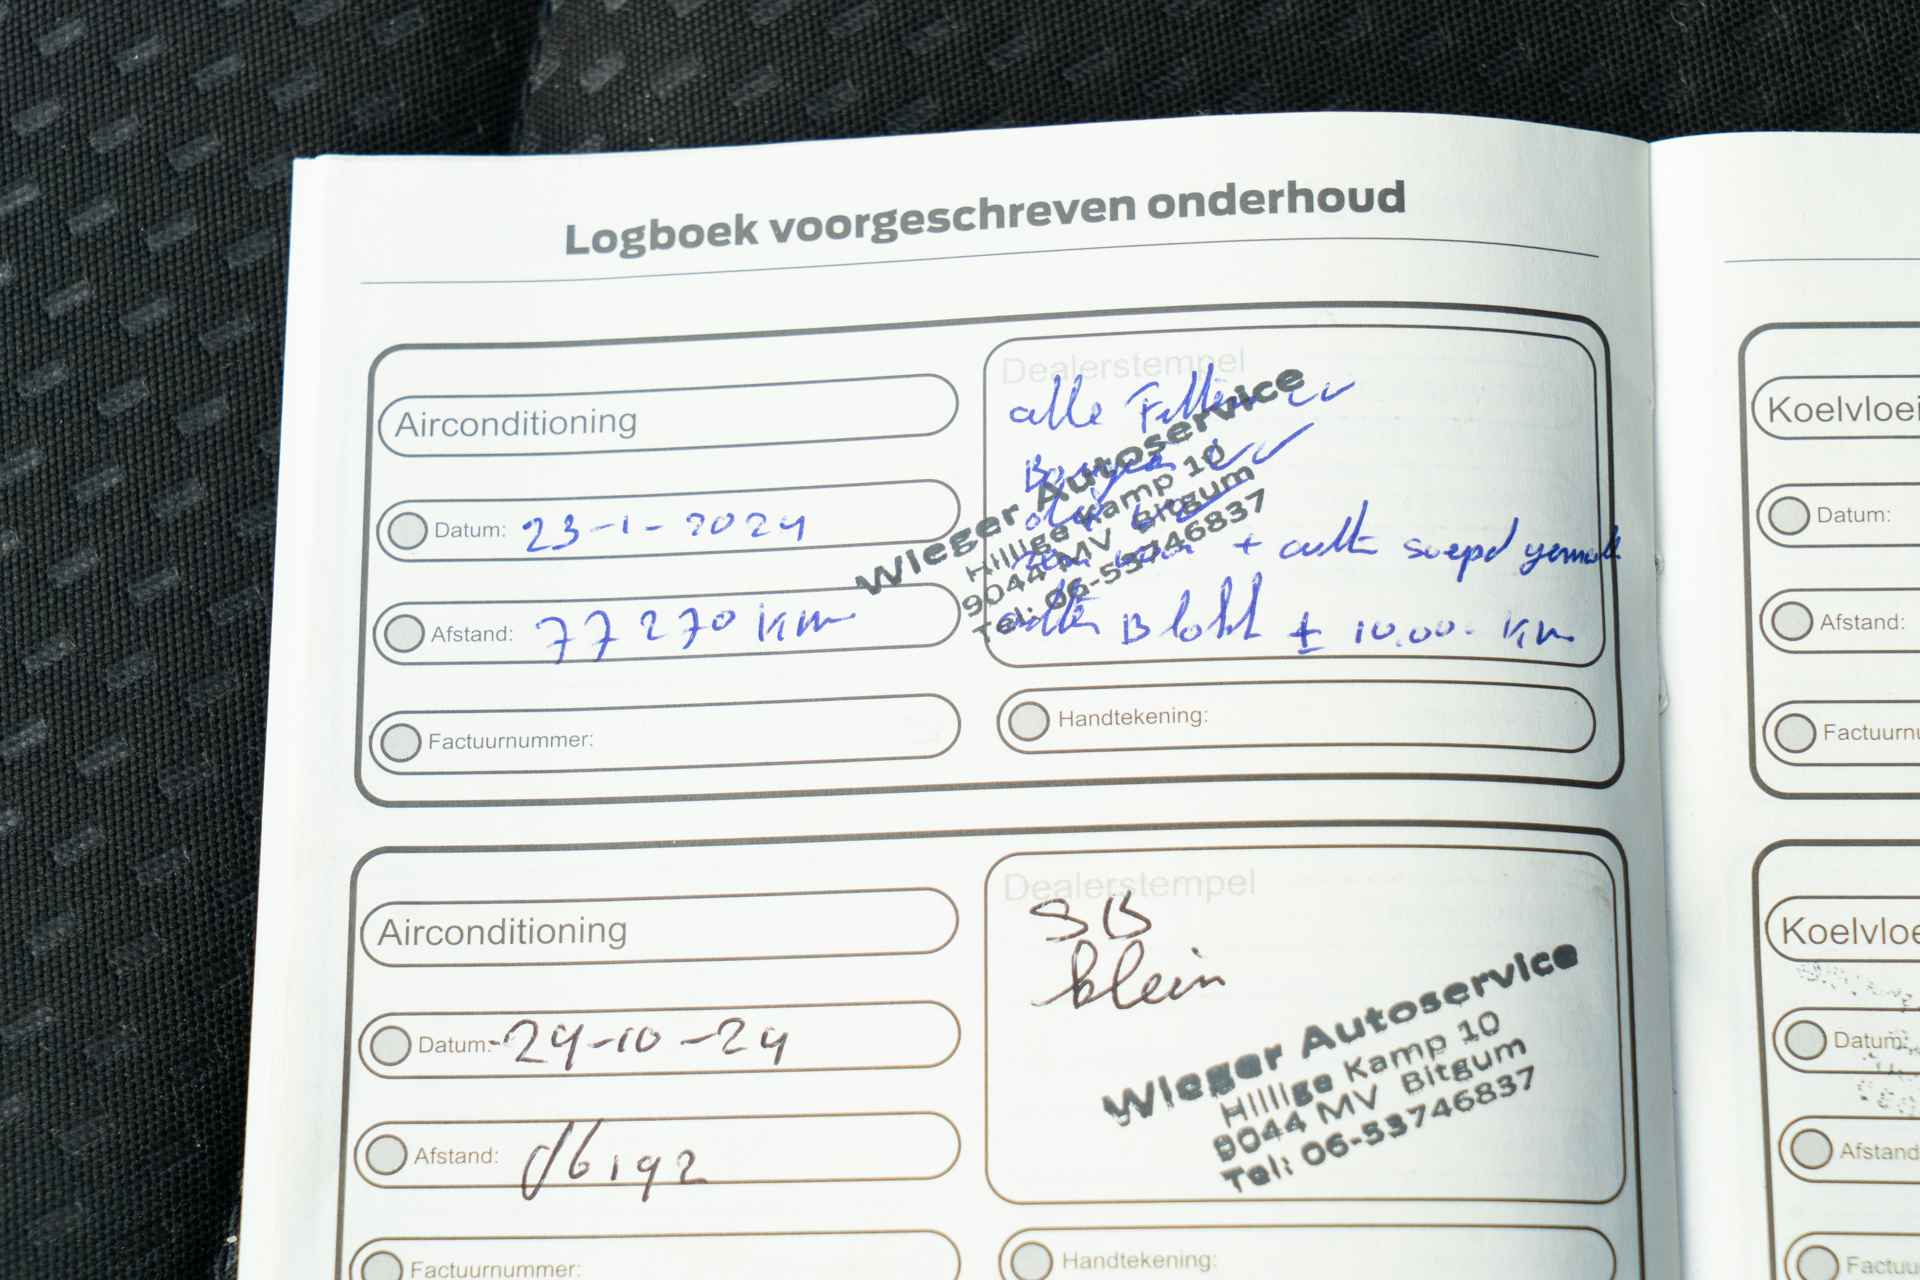 Logboek voorgeschreven onderhoud
Airconditioning
Datum: 23-1-2024
Afstand: 77270 KM
Factuurnummer:
Dealerstempel
alle
+
± 10.00 KM
Wieger Autoservice
Hillige Kamp 10
9044 MV Bitgum
Tel: 06-53746837
Handtekening:
Airconditioning
Datum: 24-10-24
Afstand:
Factuurnummer:
Dealerstempel
SB
klein
Wieger Autoservice
Hillige Kamp 10
9044 MV Bitgum
Tel: 06-53746837
Handtekening:
Koelvloei
Datum:
Afstand:
Factuurnu
Koelvloe
Datum:
Afstand
Factuu